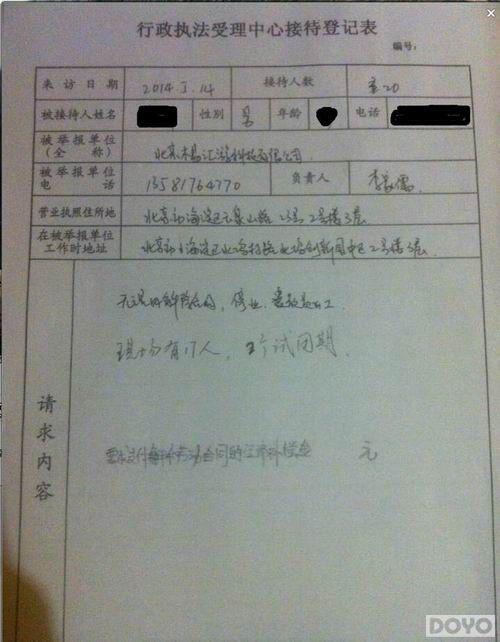 行政执法受理中心接待登记表
编号：
来访日期 2014.1.14 接待人数
被接待人姓名 性别 男 年龄 电话
被举报单位（全称） 北京木昌汇游科技有限公司
被举报单位电话 13581764770 负责人 李家儒
营业执照住所地 北京市海淀区玉泉山路23号2号楼3层
在被举报单位工作时地址 北京市海淀区北坞村路北坞创新园中区2号楼3层
请求内容
无误解除合同，停业，
现场有17人，2个试用期.
要求支付解除劳动合同的经济补偿金 元
DOYO